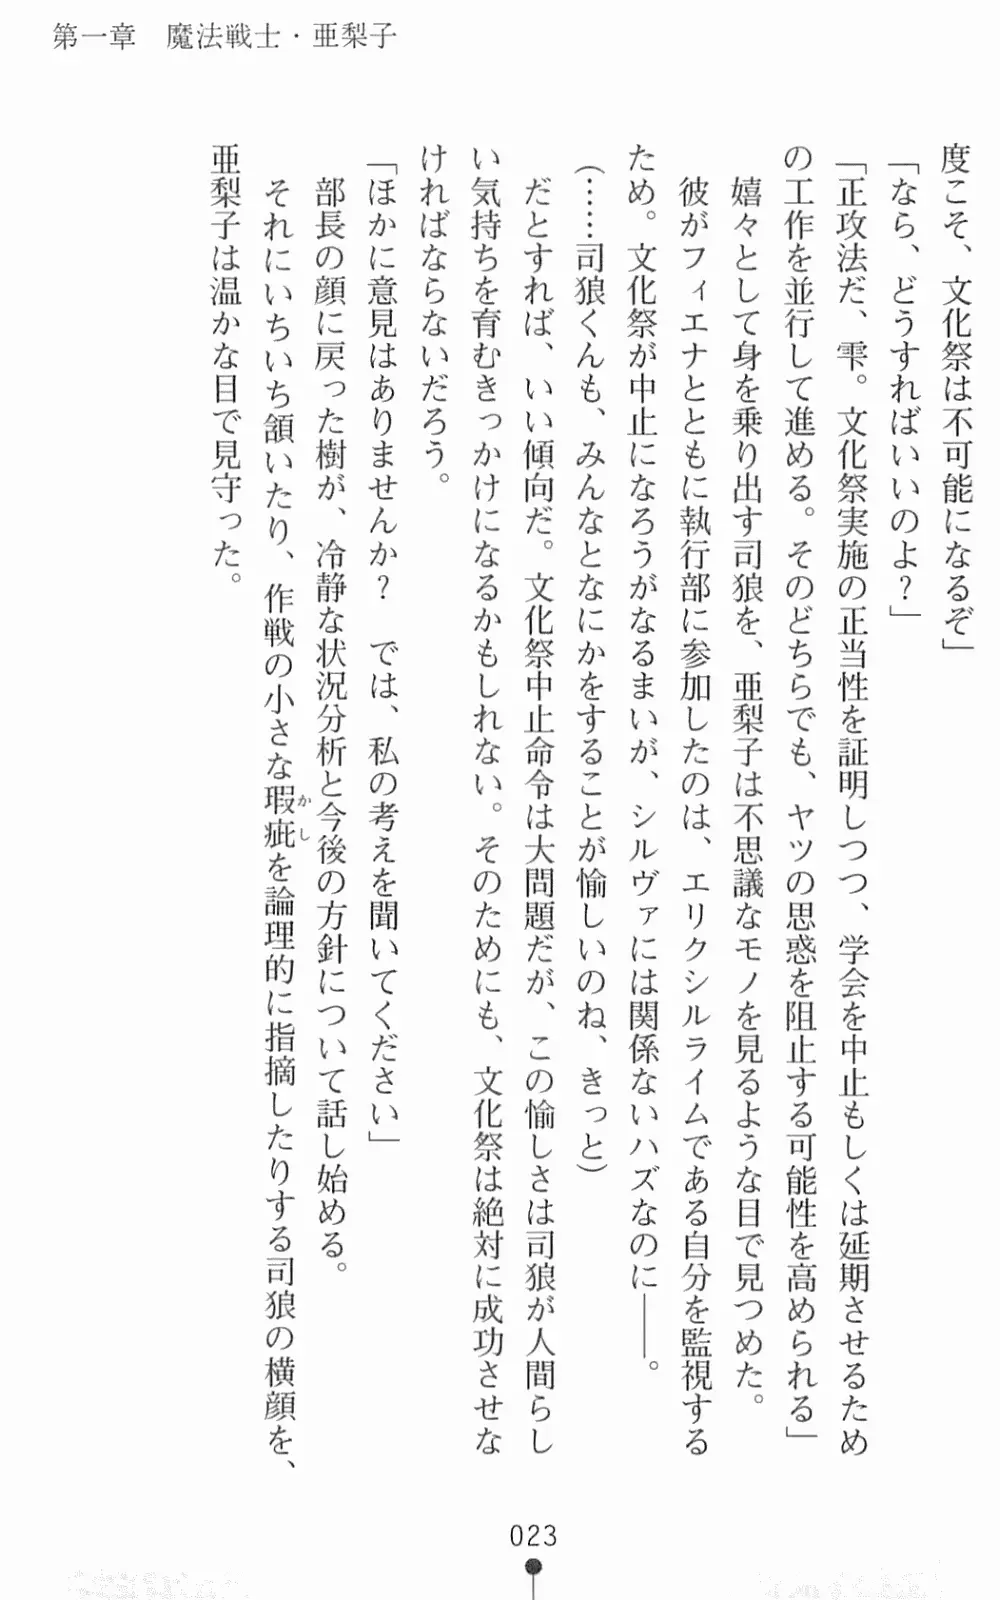 第一章　魔法戦士・亜梨子
度こそ、文化祭は不可能になるぞ」
「なら、どうすればいいのよ？」
「正攻法だ、雫。文化祭実施の正当性を証明しつつ、学会を中止もしくは延期させるため
の工作を並行して進める。そのどちらでも、ヤツの思惑を阻止する可能性を高められる」
　嬉々として身を乗り出す司狼を、亜梨子は不思議なモノを見るような目で見つめた。
　彼がフィエナとともに執行部に参加したのは、エリクシルライムである自分を監視する
ため。文化祭が中止になろうがなるまいが、シルヴァには関係ないハズなのに――。
（……司狼くんも、みんなとなにかをすることが愉しいのね、きっと）
　だとすれば、いい傾向だ。文化祭中止命令は大問題だが、この愉しさは司狼が人間らし
い気持ちを育むきっかけになるかもしれない。そのためにも、文化祭は絶対に成功させな
ければならないだろう。
「ほかに意見はありませんか？　では、私の考えを聞いてください」
　部長の顔に戻った樹が、冷静な状況分析と今後の方針について話し始める。
　それにいちいち頷いたり、作戦の小さな瑕疵を論理的に指摘したりする司狼の横顔を、
かし
亜梨子は温かな目で見守った。
023